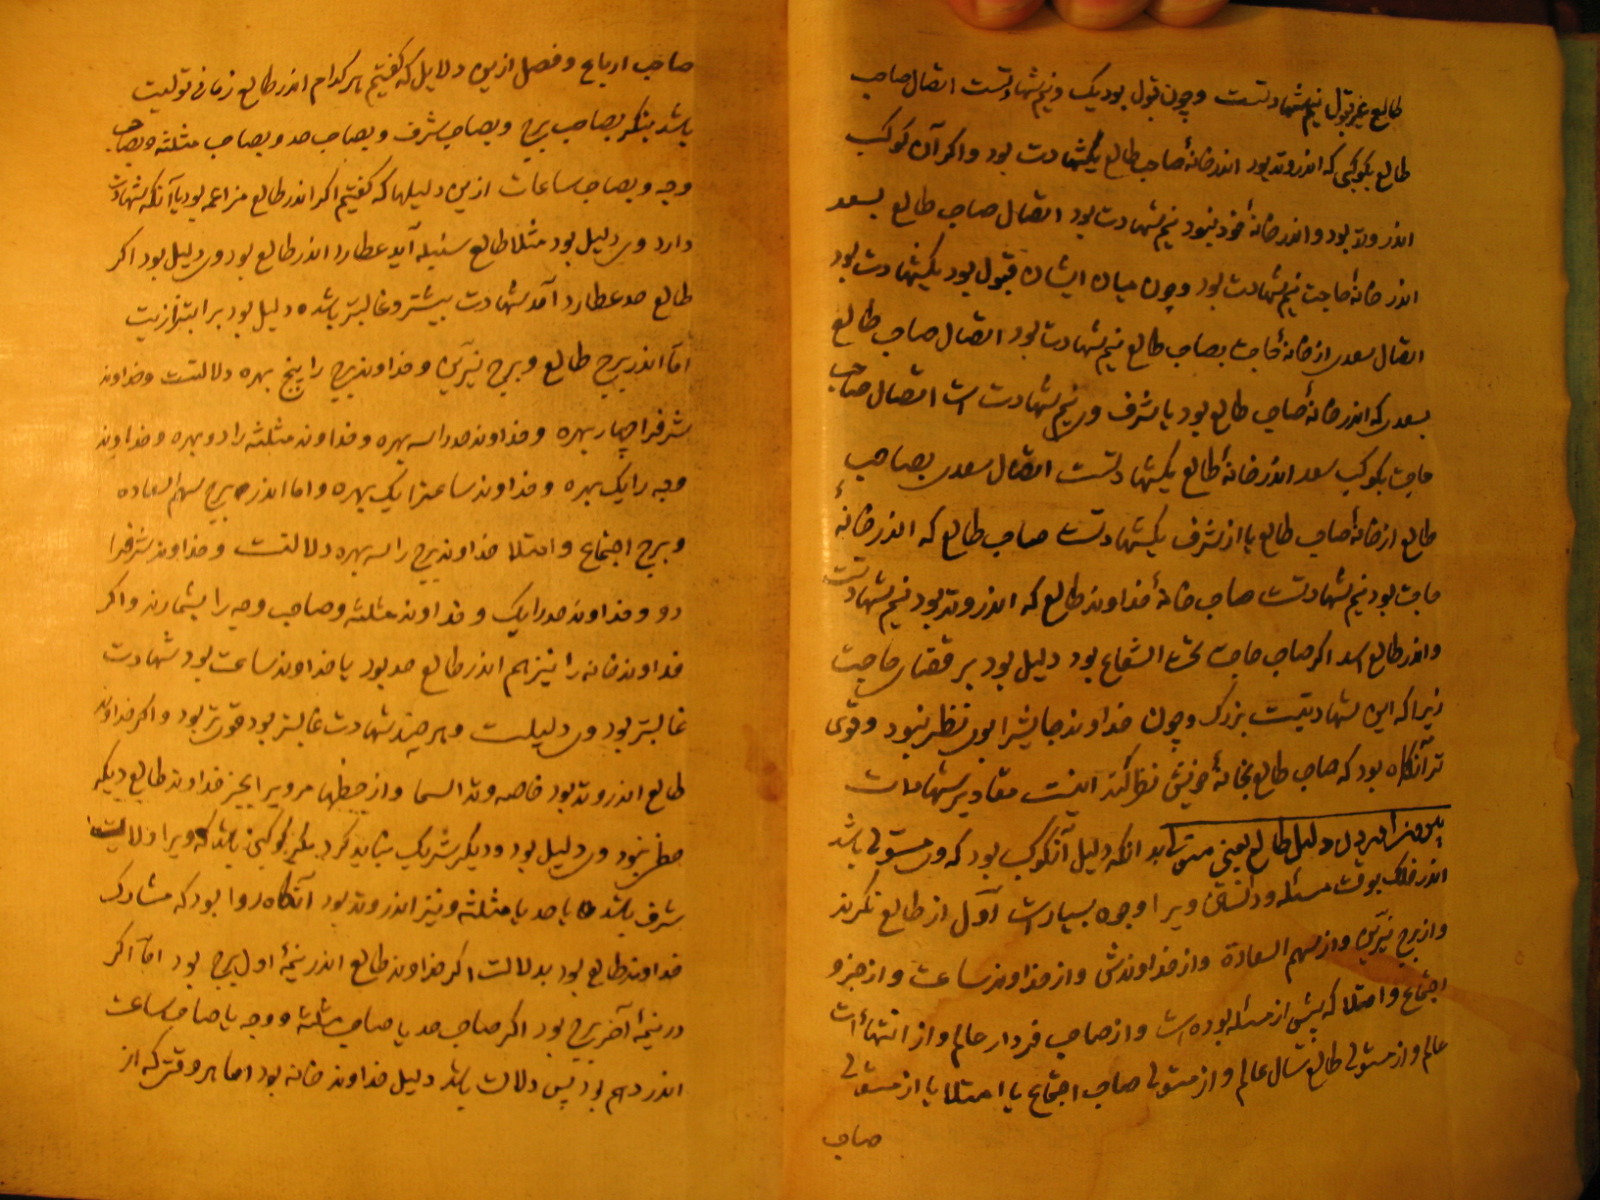 طالع بی قبول نیم شهادتست و چون قبول بود یک و نیم شهادتست اتصال صاحب
طالع بکوکبی که اندر وتد بود اندر خانهٔ صاحب طالع یکشهادت بود و اکر آن کوکب
اندر وتد بود و اندر خانهٔ خود نبود نیم شهادت بود اتصال صاحب طالع بسعد
اندر خانهٔ حاجت نیم شهادت بود و چون میان ایشان قبول بود یکشهادت بود
اتصال سعدی از خانهٔ حاجت بصاحب طالع نیم شهادت بود اتصال صاحب طالع
بسعدی که اندر خانهٔ صاحب طالع بود یا شرف وی نیم شهادت است اتصال صاحب
حاجت بکوکب سعد اندر خانهٔ طالع یکشهادتست اتصال سعدی بصاحب
طالع از خانهٔ صاحب طالع یا از شرف یکشهادتست صاحب طالع که اندر خانهٔ
حاجت بود نیم شهادتست صاحب خانهٔ خداوند طالع که اندر وتد بود نیم شهادتست
و اندر طالع اسد اکر صاحب حاجت تحت الشعاع بود دلیل بود بر قضای حاجت
زیرا که این شهادتیست بزرک و چون خداوند جایش را بوی نظر نبود و قوی
تر آنکاه بود که صاحب طالع بخانهٔ خویش نظر کند اینست مقادیر شهادات
بیرون آوردن دلیل طالع یعنی مستولی بدانکه دلیل آنکوکب بود که وی مستولی باشد
اندر فلک بوقت مسئله و دانستن ویرا وجوه بسیارست اول از طالع نکرند
و از برج نیرین و از سهم السعادة و از خداوندش و از خداوند ساعت و از جزو
اجتماع و امتلا که پیش از مسئله بوده است و از صاحب فردار عالم و از انتهاءات
عالم و از مستولی طالع سال عالم و از مستولی صاحب اجتماع یا امتلا یا از مستولی
صاحب
صاحب ارباع و فصل ازین دلایل که کفتیم هر کدام اندر طالع زمانی تولیت
باشد بنکر بصاحب برج و بصاحب شرف و بصاحب حد و بصاحب مثلثه و بصاحب
وجه و بصاحب ساعات ازین دلیلها که کفتیم اکر اندر طالع مزاعمه بود یا آنکه شهادت
دارد وی دلیل بود مثلا طالع سنبله آید عطارد اندر طالع بود وی دلیل بود اکر
طالع حد عطارد آمد شهادت بیشتر و غالبتر باشد دلیل بود بر ابتزازیت
اما اندر برج طالع و برج نیرین و خداوند برج را پنج بهره دلالتست و خداوند
شرفرا چهار بهره و خداوند حد را سه بهره و خداوند مثلثه را دو بهره و خداوند
وجه را یک بهره و خداوند ساعترا یک بهره و اما اندر برج سهم السعاده
و برج اجتماع و امتلا خداوند برج را سه بهره دلالتست و خداوند شرفرا
دو و خداوند حد را یک و خداوند مثلثه و صاحب وجه را بشمارند و اکر
خداوند خانه را نیز هم اندر طالع حد بود یا خداوند ساعت بود شهادت
غالبتر بود وی دلیلست و هر چند شهادت غالبتر بود قوی تر بود و اکر خداوند
طالع اندر وتد بود خاصه وتد السما و از حظها مر ویرا بجز خداوند طالع دیکر
حظی نبود وی دلیل بود و دیکر شریک نباید کرد مکر کوکبی باشد که ویرا ولایت
شرف باشد یا حد یا مثلثه و نیز اندر وتد بود آنکاه روا بود که مشارک
خداوند طالع بود بدلالت اکر خداوند طالع اندر نیمهٔ اول برج بود اما اکر
در نیمهٔ آخر برج بود اکر صاحب حد یا صاحب مثلثه و وجه یا صاحب ساعت
اندر دهم بود پس دلالت باشد دلیل خداوند خانه بود اما هر وقتی که از